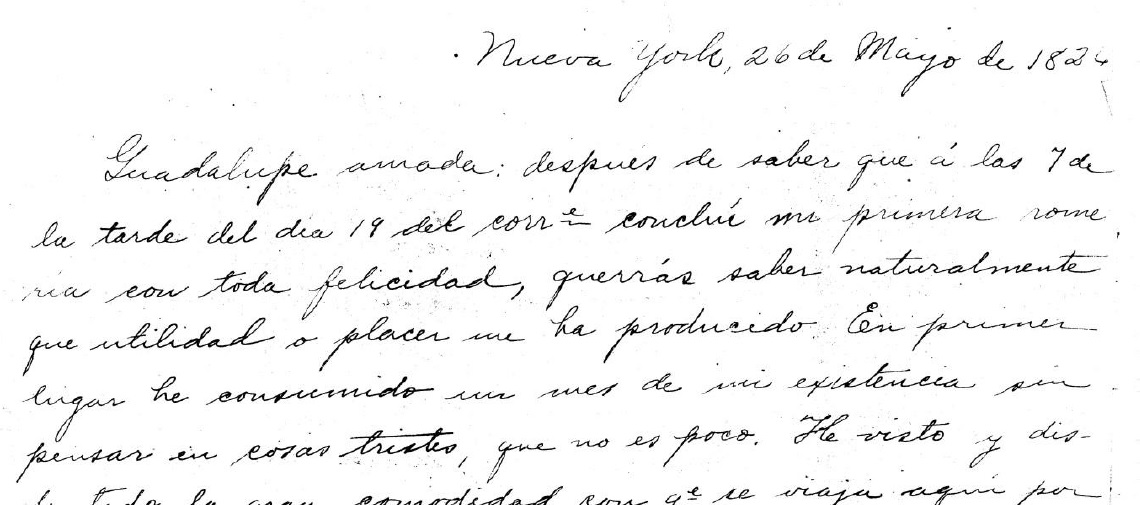 Nueva York, 26 de Mayo de 182
Guadalupe amada: despues de saber que á las 7 de
la tarde del dia 19 del corrᵉ concluí mi primera rome
ria con toda felicidad, querrás saber naturalmente
que utilidad o placer me ha producido. En primer
lugar he consumido un mes de mi existencia sin
pensar en cosas tristes, que no es poco. He visto y dis-
toda la gran comodidad con qᵉ se viaja aquí por